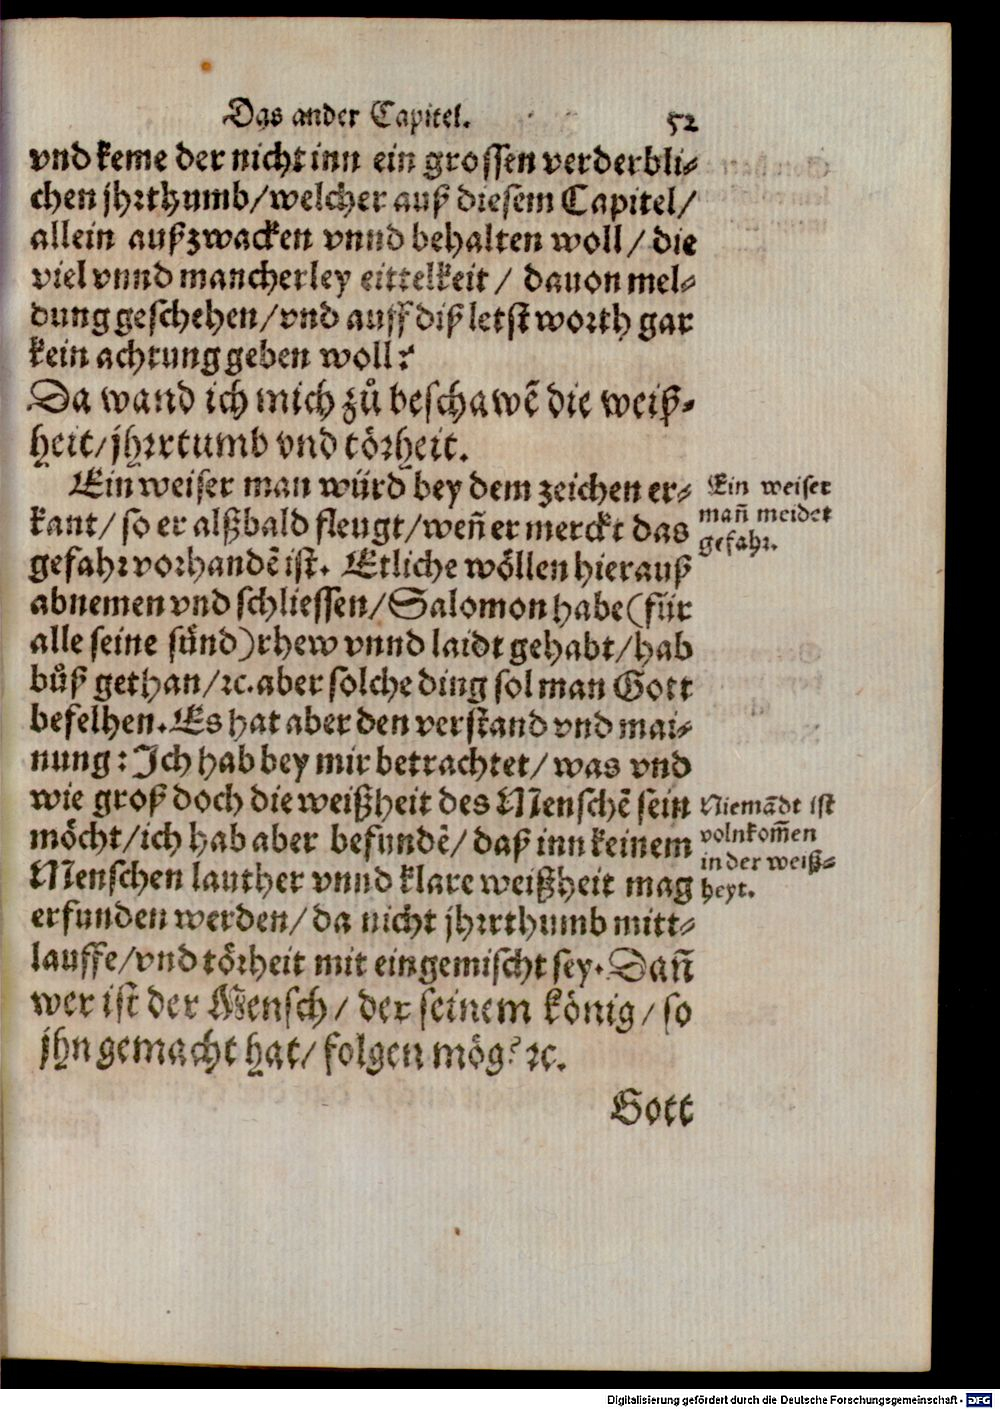 Das ander Capitel. 52
vnd keme der nicht inn ein grossen verderbli⸗
chen jhrthumb/welcher auß diesem Capitel/
allein außzwacken vnnd behalten woll/die
viel vnnd mancherley eittelkeit/ dauon mel⸗
dung geschehen/vnd auff diß letst worth gar
kein achtung geben woll?
Da wand ich mich zů beschawẽ die weiß⸗
heit/jhrrtumb vnd törheit.
Ein weiser man würd bey dem zeichen er⸗
kant/so er alßbald fleugt/weñ er merckt das
gefahr vorhandẽ ist. Etliche wöllen hierauß
abnemen vnd schliessen/Salomon habe(für
alle seine sünd)rhew vnnd laidt gehabt/hab
bůß gethan/ꝛc.aber solche ding sol man Gott
befelhen.Es hat aber den verstand vnd mai⸗
nung:Ich hab bey mir betrachtet/was vnd
wie groß doch die weißheit des Menschẽ sein
möcht/ich hab aber befundẽ/daß inn keinem
Menschen lauther vnnd klare weißheit mag
erfunden werden/da nicht jhrrthumb mitt⸗
lauffe/vnd törheit mit eingemischt sey.Dañ
wer ist der Mensch/der seinem könig/so
jhn gemacht hat/folgen mög? ꝛc.
Gott
Ein weiser
mañ meidet
gefahr.
Niemãdt ist
volnkom̃en
in der weiß⸗
heyt.
Digitalisierung gefördert durch die Deutsche Forschungsgemeinschaft - DFG